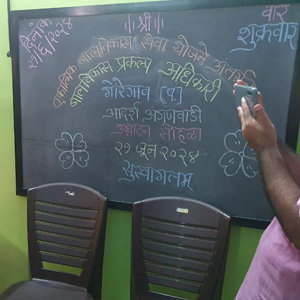 ॥श्री॥
दिनांक
२१/६/२०२४
वार
शुक्रवार
एकात्मिक बालविकास सेवा योजने अंतर्गत
बालविकास प्रकल्प अधिकारी
भरेगाव [प.]
आदर्श अंगणवाडी
उद्घाटन सोहळा
२१ जून २०२४
सुस्वागतम्